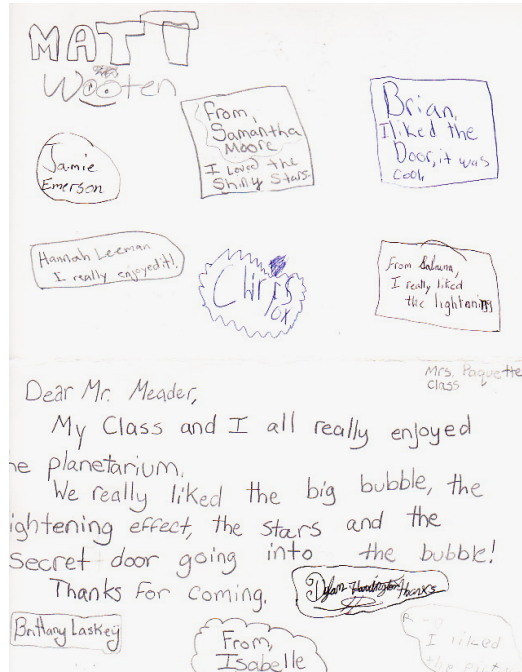 MATT
Wooten
From,
Samantha
Moore
I Loved the
Shiny Stars.
Brian,
I liked the
Door, it was
cool,
Jamie
Emerson
Hannah Leeman
I really enjoyed it!
Chris
ox
From
I really liked
the lightening
Mrs. Paquette
Class
Dear Mr. Meader,
My Class and I all really enjoyed
he planetarium.
We really liked the big bubble, the
ightening effect, the stars and the
secret door going into the bubble!
Thanks For coming.
Dylan Harrington thanks
Brittany Laskey
From,
Isabelle
I liked